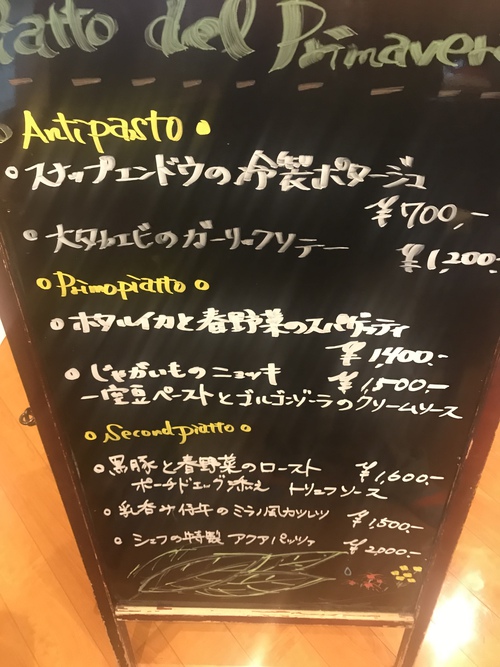 iatto del Primaver
Antipasto
スナップエンドウの冷製ポタージュ
¥700.-
大タルエビのガーリックソテー ¥1,200.-
Primopiatto
ホタルイカと春野菜のスパゲッティ
¥1,400.-
じゃがいものニョッキ ¥1,500.-
ー空豆ペーストとゴルゴンゾーラのクリームソース
Secondpiatto
黒豚と春野菜のロースト ¥1,600.-
ポーチドエッグ添え トリュフソース
乳呑み仔牛のミラノ風カツレツ ¥1,500.-
シェフの特製 アクアパッツァ ¥2,000.-